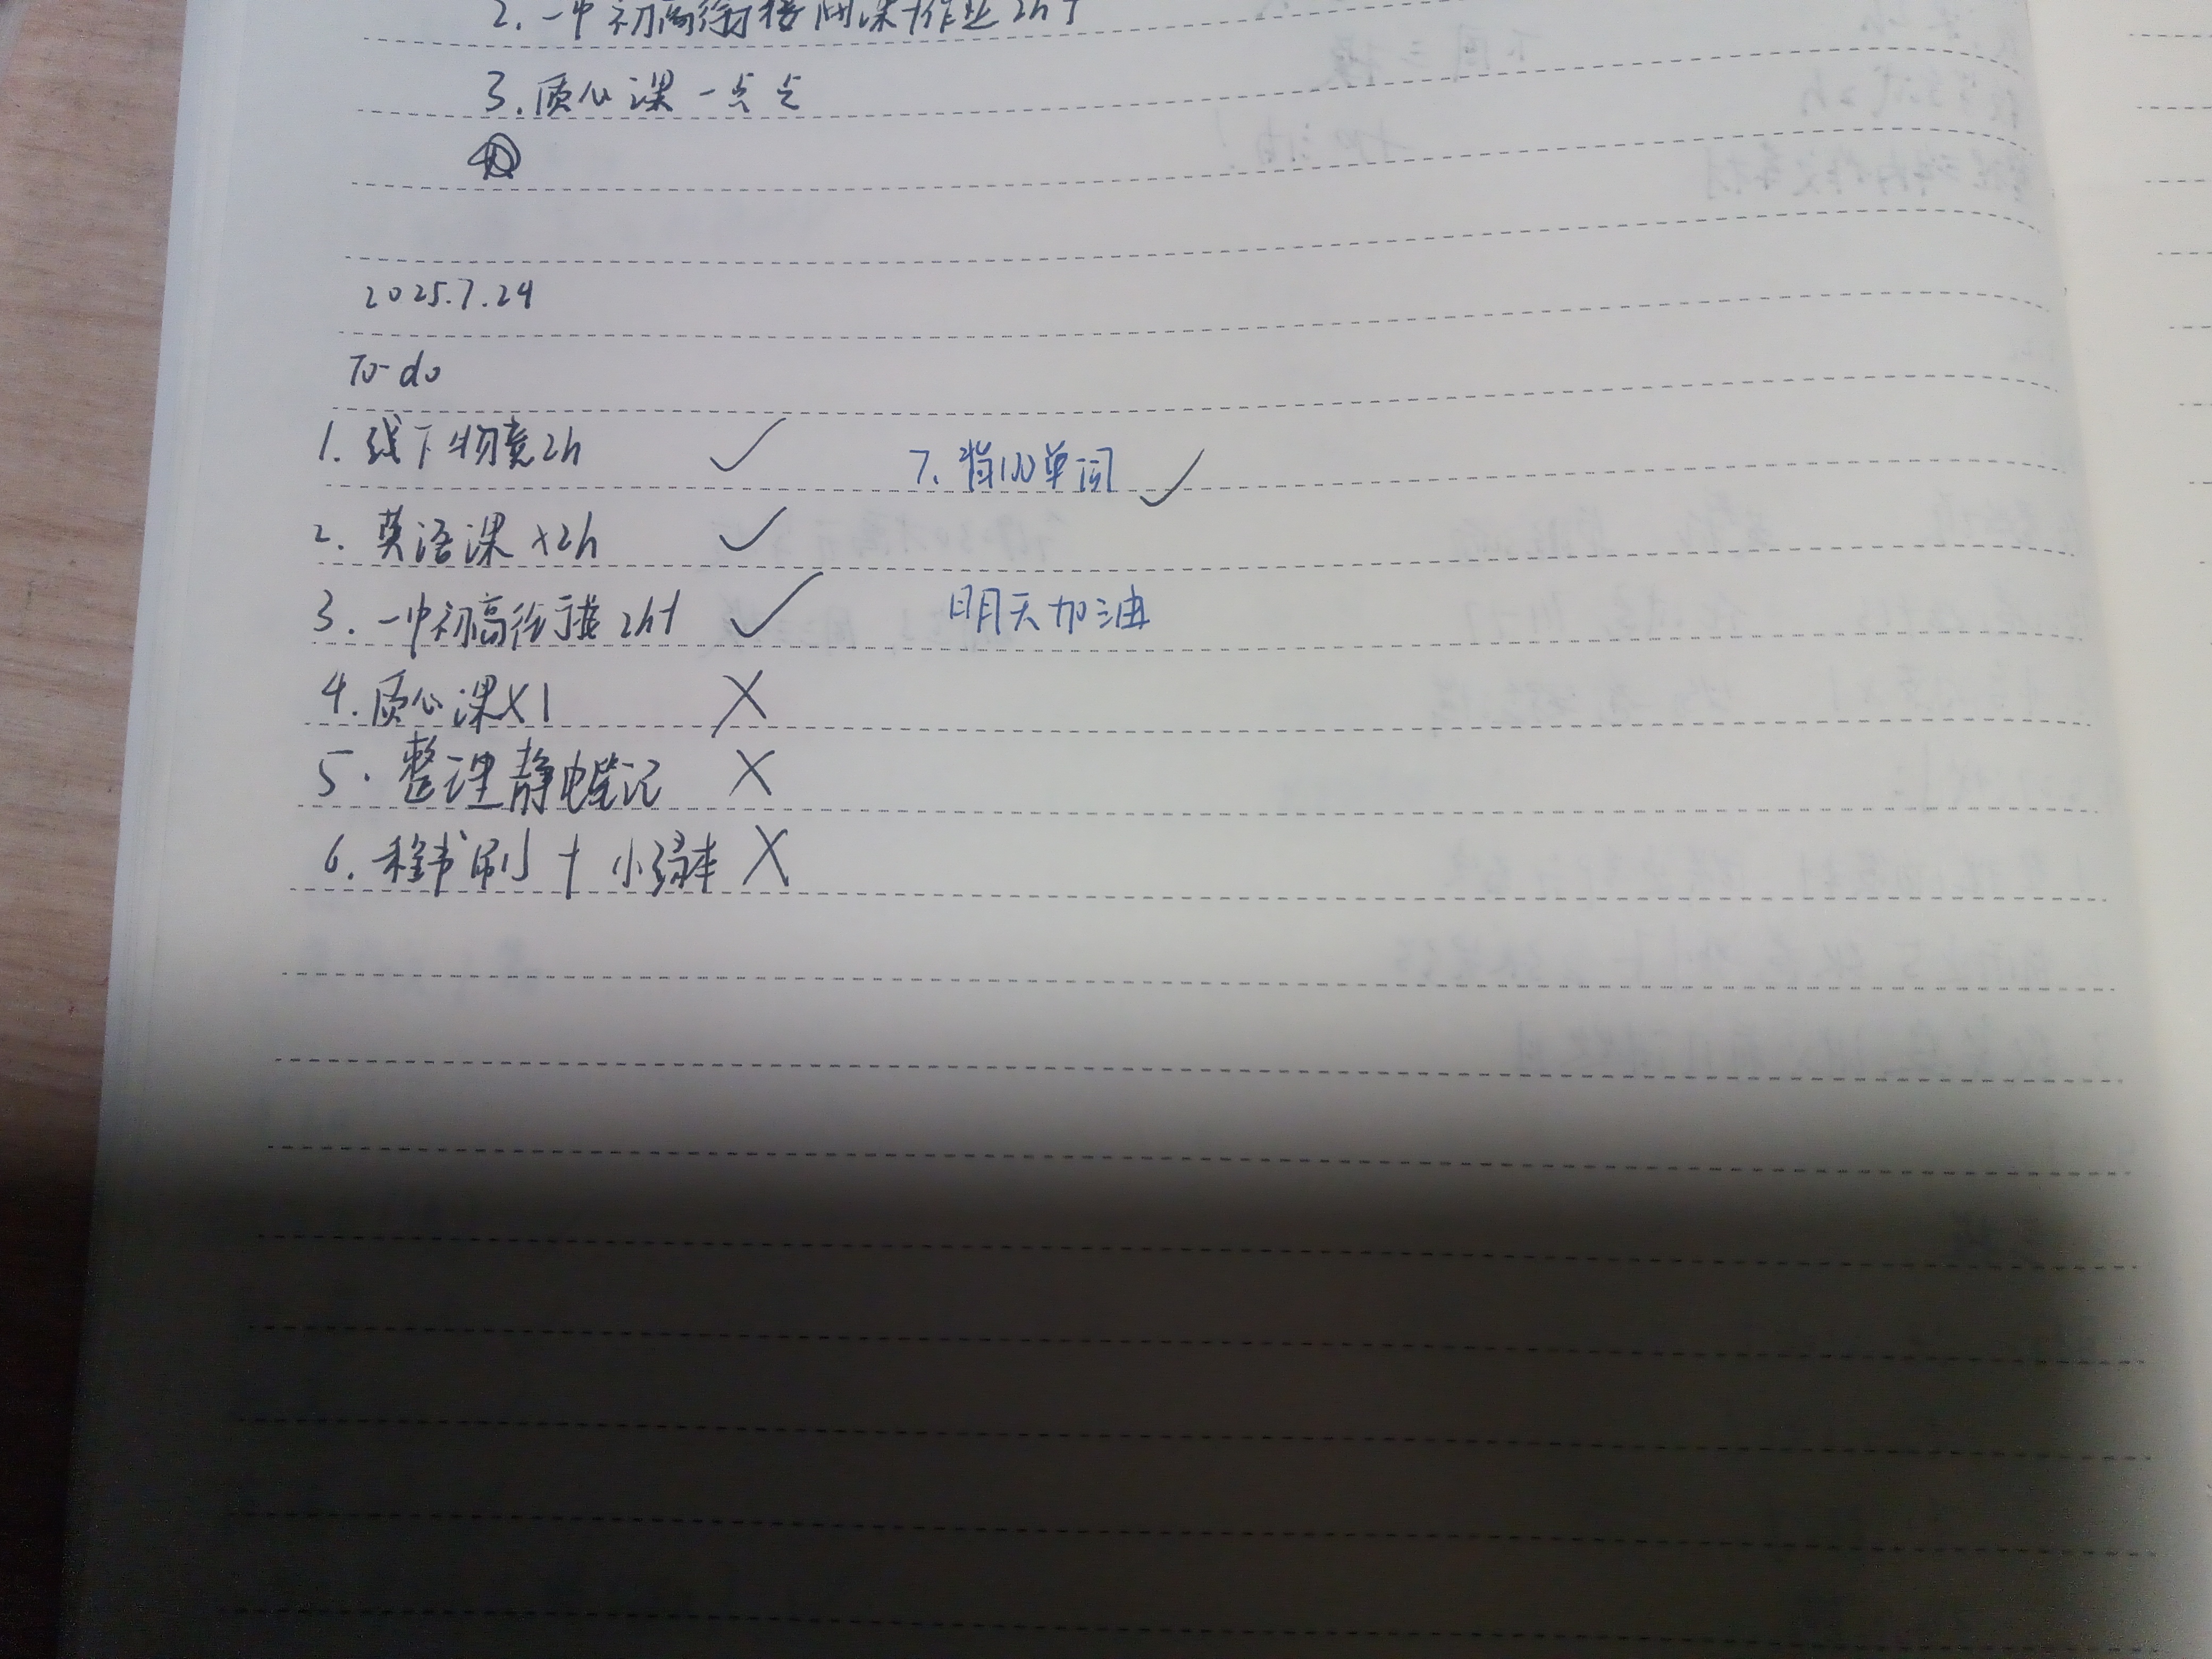 2. 一中初高衔接网课+作业 2h+
3. 质心课一点点
2025.7.24
To-do
1. 线下物竞2h ✓
2. 英语课 ×2h ✓
3. 一中初高衔接 2h+ ✓
4. 质心课×1 ×
5. 整理静电笔记 ×
6. 程书刷 + 小绿本 ×
7. 背100单词 ✓
明天加油